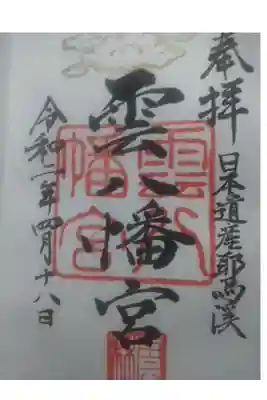 奉拝
日本遺産耶馬渓
雲八幡宮
雲八幡宮
令和二年四月十八日